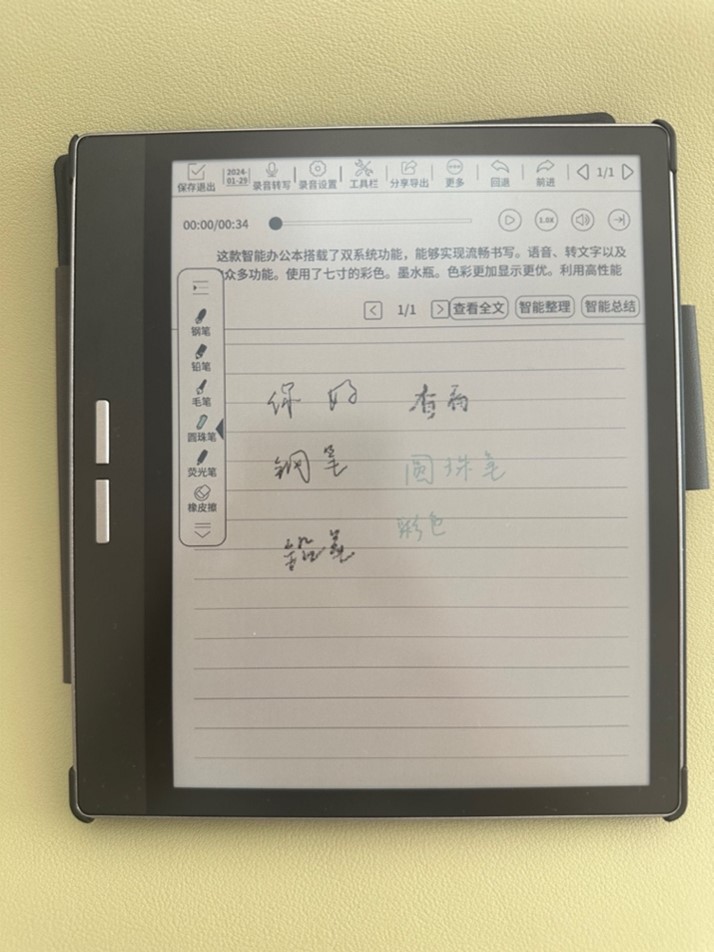 保存退出 2024-01-29 录音转写 录音设置 工具栏 分享导出 更多 回退 前进 1/1
00:00/00:34 1.0X
这款智能办公本搭载了双系统功能，能够实现流畅书写。语音、转文字以及
众多功能。使用了七寸的彩色。墨水瓶。色彩更加显示更优。利用高性能
1/1 查看全文 智能整理 智能总结
钢笔
铅笔
毛笔
圆珠笔
荧光笔
橡皮擦
你好
钢笔 圆珠笔
彩色
铅笔